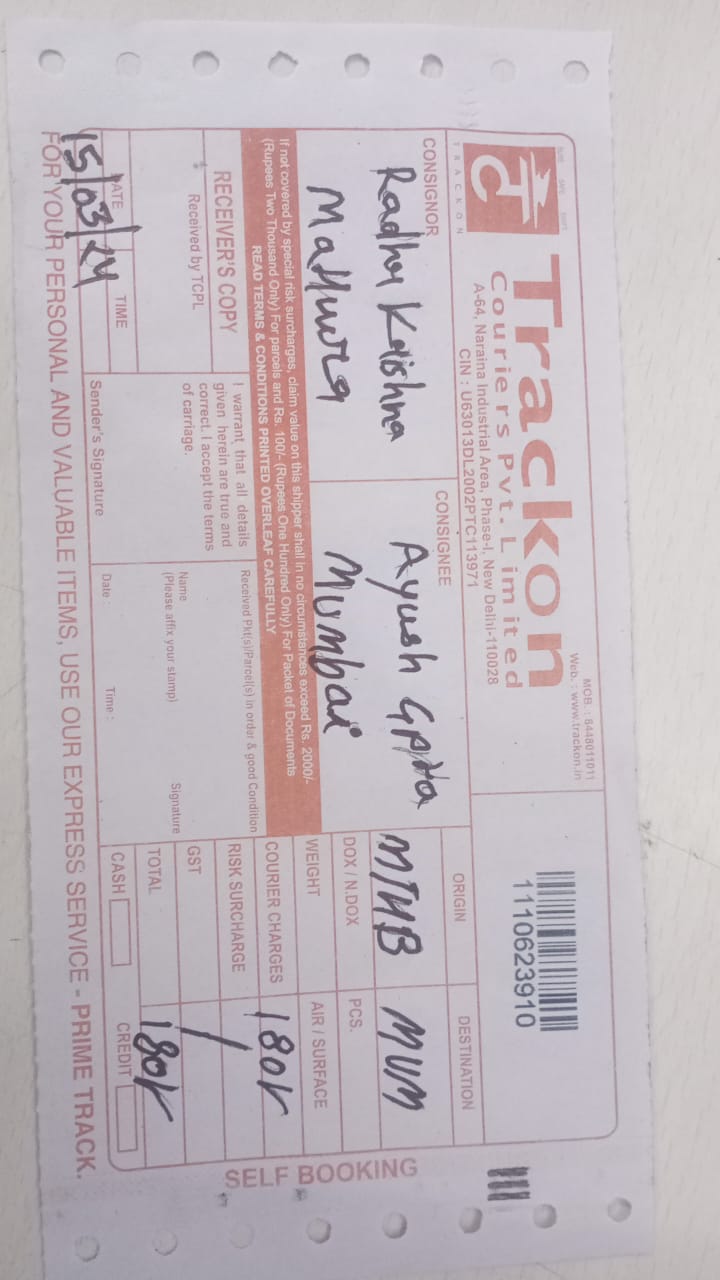 MOB. : 8448011011
Web. : www.trackon.in
TRACKON
Trackon
Couriers Pvt. Limited
A-64, Naraina Industrial Area, Phase-I, New Delhi-110028
CIN : U63013DL2002PTC113971
1110623910
CONSIGNOR
Radha Krishna
Mathura
CONSIGNEE
Ayush Gupta
Mumbai
ORIGIN
DESTINATION
MTHB
MUM
DOX / N.DOX
PCS.
WEIGHT
AIR / SURFACE
COURIER CHARGES
180/-
RISK SURCHARGE
GST
TOTAL
180/-
CASH
CREDIT
If not covered by special risk surcharges, claim value on this shipper shall in no circumstances exceed Rs. 2000/-
(Rupees Two Thousand Only) For parcels and Rs. 100/- (Rupees One Hundred Only) For Packet of Documents
READ TERMS & CONDITIONS PRINTED OVERLEAF CAREFULLY
RECEIVER'S COPY
Received by TCPL
DATE
TIME
15/03/24
I warrant that all details
given herein are true and
correct. I accept the terms
of carriage.
Sender's Signature
Received Pkt(s)/Parcel(s) in order & good Condition
Name
(Please affix your stamp)
Signature
Date :
Time :
FOR YOUR PERSONAL AND VALUABLE ITEMS, USE OUR EXPRESS SERVICE - PRIME TRACK.
SELF BOOKING